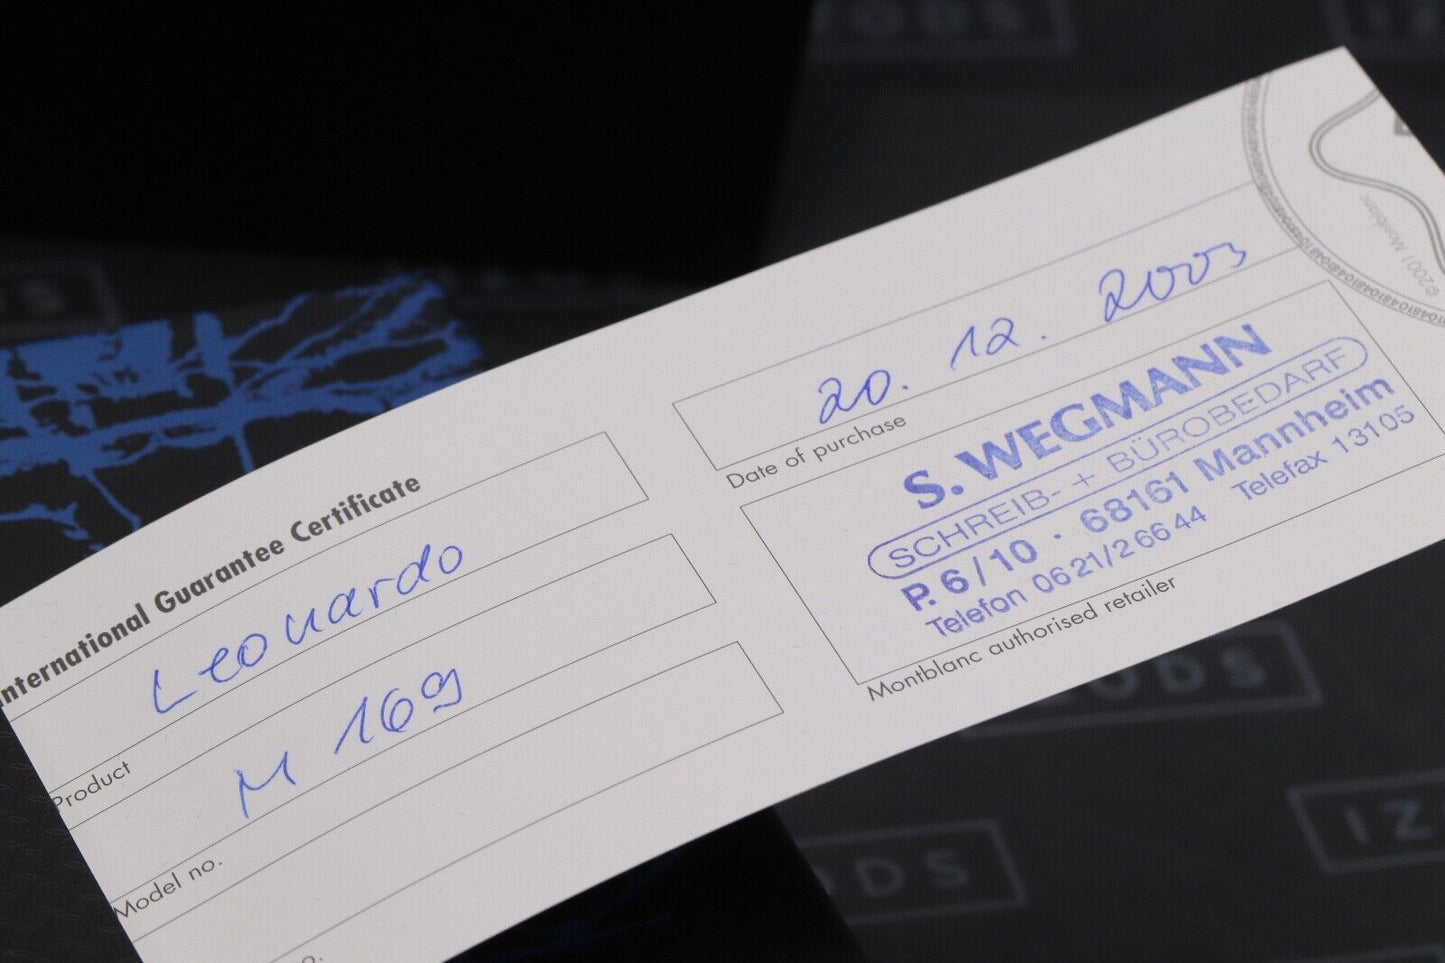 International Guarantee Certificate
Leonardo
Product
M 169
Model no.
20. 12. 2003
Date of purchase
S. WEGMANN
SCHREIB- + BÜROBEDARF
P. 6/10 · 68161 Mannheim
Telefon 0621/26644 Telefax 13105
Montblanc authorised retailer
©2001 Montblanc
IZ
ODS